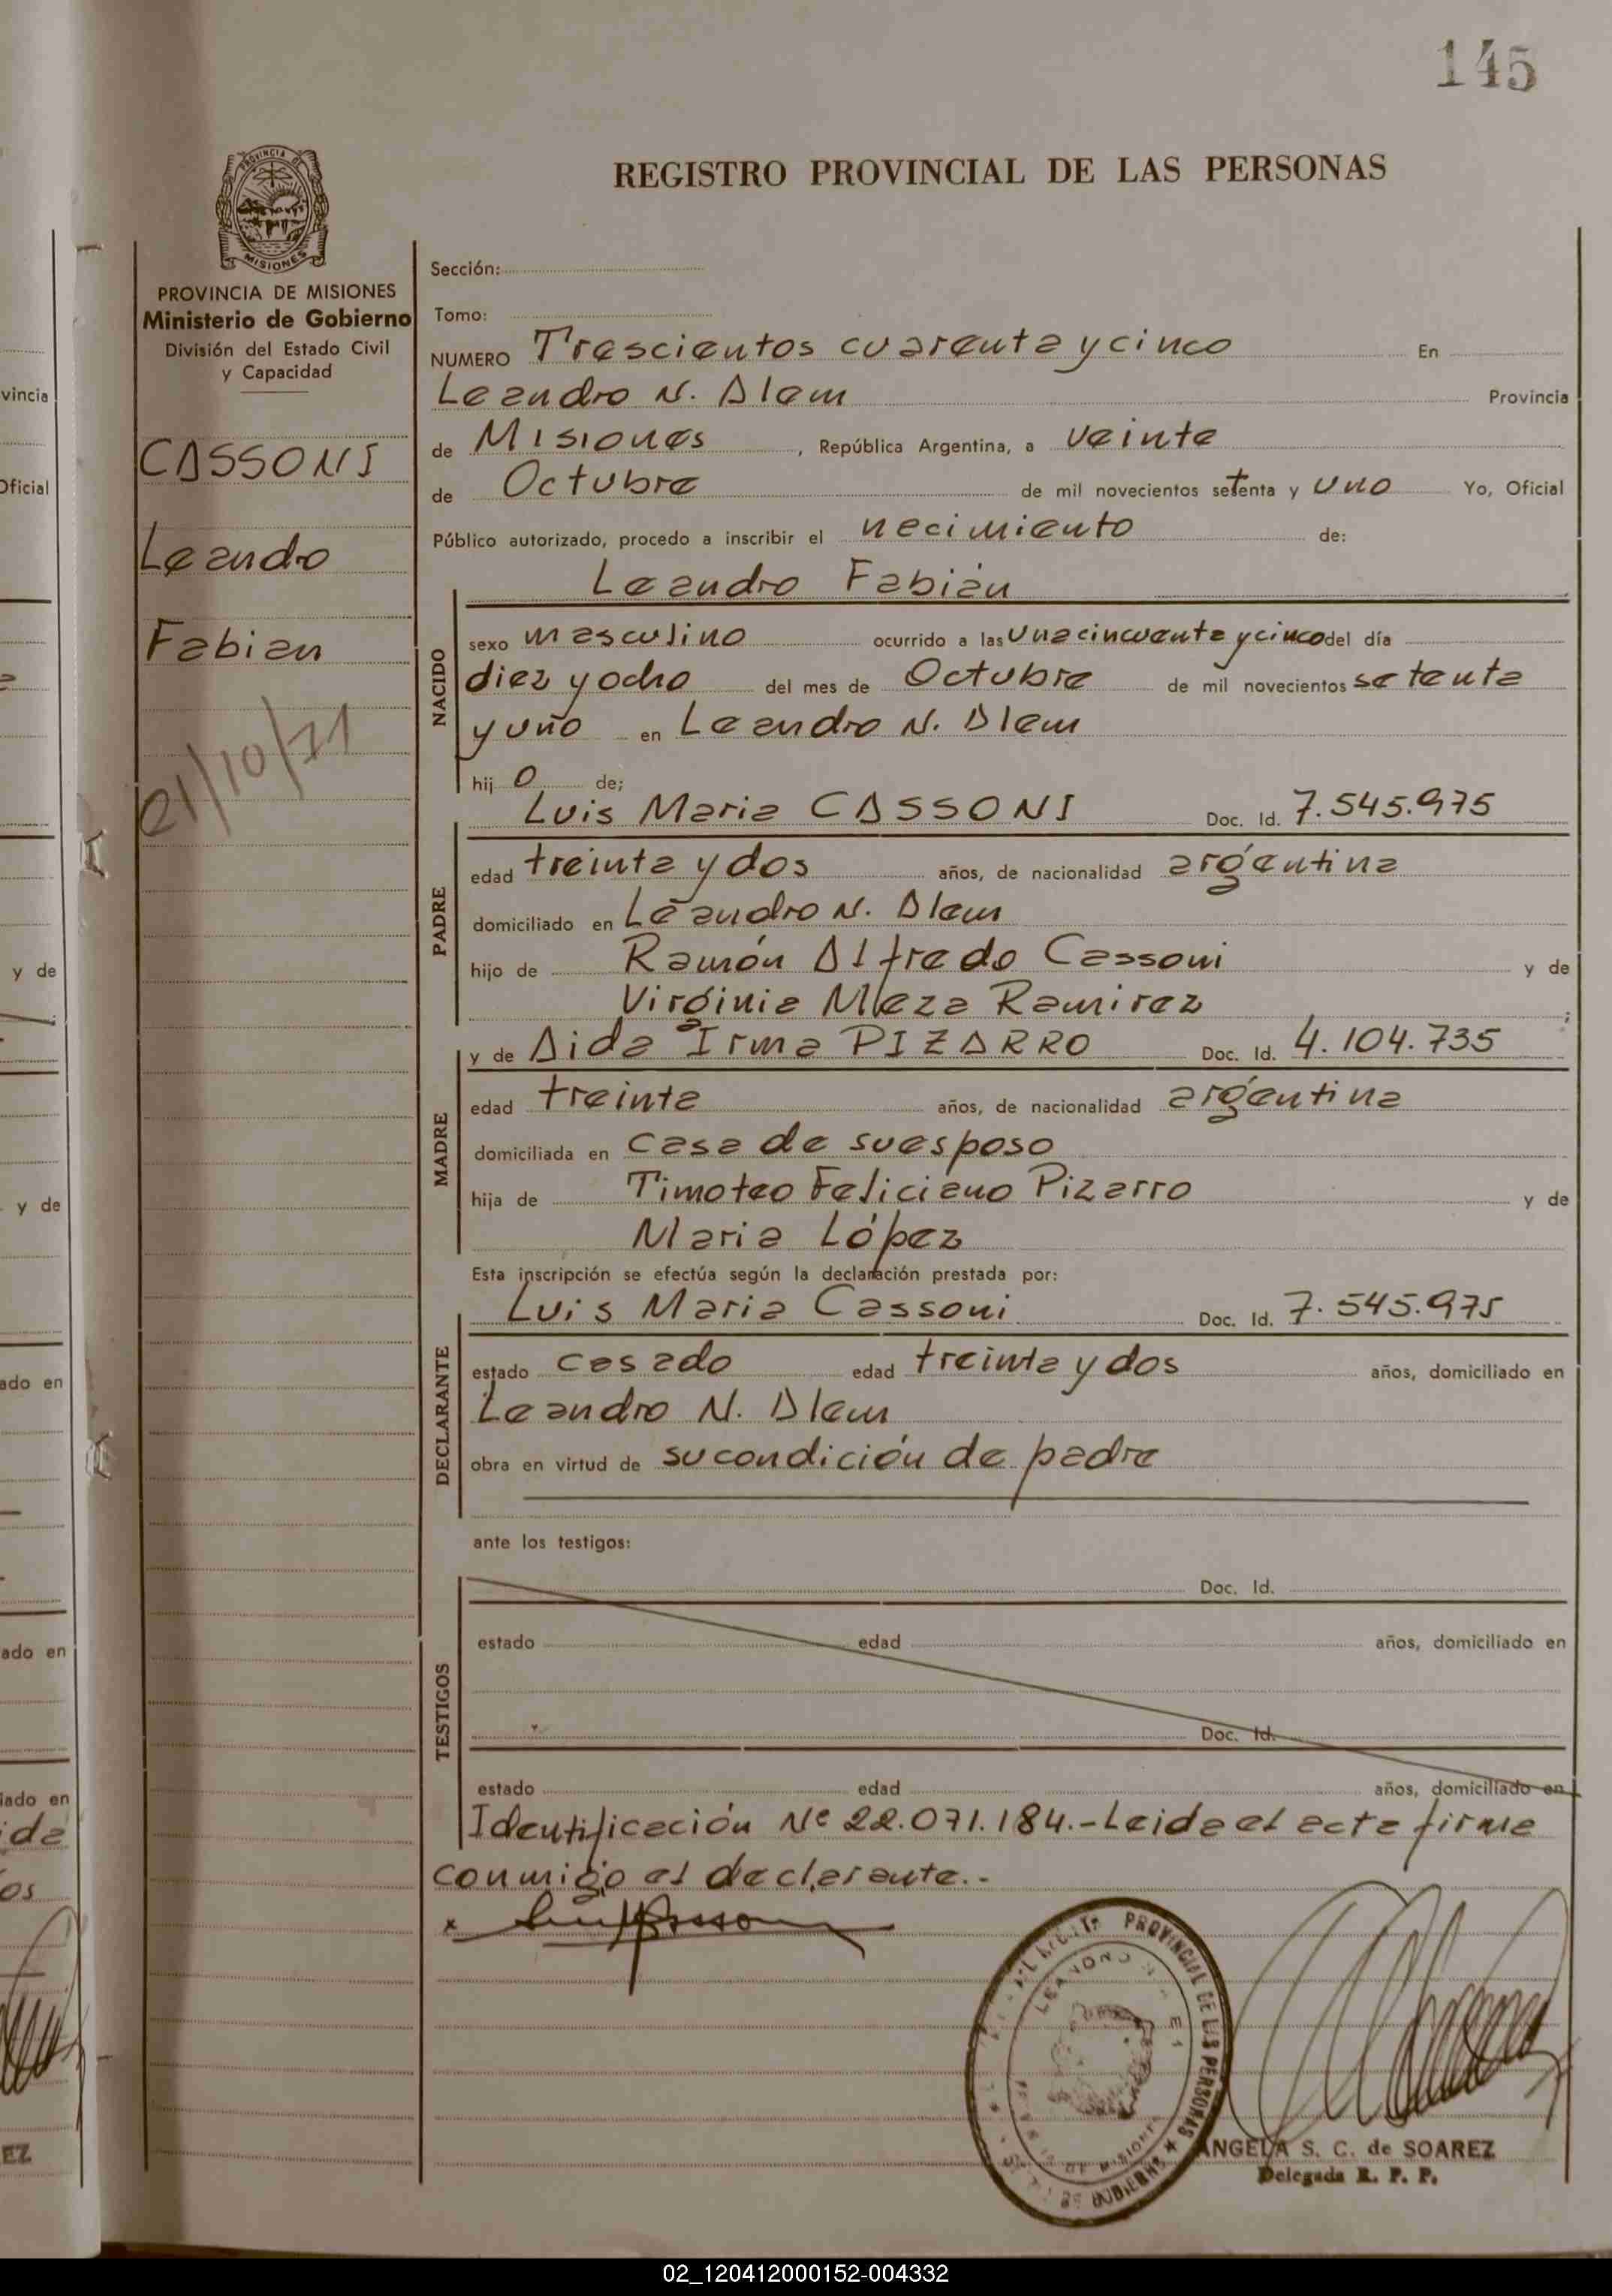 145
REGISTRO PROVINCIAL DE LAS PERSONAS
PROVINCIA DE
MISIONES
PROVINCIA DE MISIONES
Ministerio de Gobierno
División del Estado Civil
y Capacidad
CASSONI
Leandro
Fabian
21/10/71
Sección:
Tomo:
NUMERO Trescientos cuarenta y cinco En
Leandro N. Alem Provincia
de Misiones, República Argentina, a veinte
de Octubre de mil novecientos setenta y uno Yo, Oficial
Público autorizado, procedo a inscribir el necimiento de:
Leandro Fabián
NACIDO
sexo masculino ocurrido a las una cincuenta y cinco del día
diez y ocho del mes de Octubre de mil novecientos setenta
y uno en Leandro N. Alem
hij o de;
Luis Maria CASSONI Doc. Id. 7.545.975
PADRE
edad treinta y dos años, de nacionalidad argentina
domiciliado en Leandro N. Alem
hijo de Ramón Alfredo Cassoni y de
Virginia Meza Ramirez ;
y de Aida Irma PIZARRO Doc. Id. 4.104.735
MADRE
edad treinta años, de nacionalidad argentina
domiciliada en casa de su esposo
hija de Timoteo Feliciano Pizarro y de
Maria López
Esta inscripción se efectúa según la declaración prestada por:
Luis Maria Cassoni Doc. Id. 7.545.975
DECLARANTE
estado casado edad treinta y dos años, domiciliado en
Leandro N. Alem
obra en virtud de su condición de padre
ante los testigos:
Doc. Id.
TESTIGOS
estado edad años, domiciliado en
Doc. Id.
estado edad años, domiciliado en
Identificación Nº 22.071.184.- Leida el acta firma
conmigo el declarante.-
x
PROVINCIAL DE LAS PERSONAS
LEANDRO N.
DE MISIONES
ANGELA S. C. de SOAREZ
Delegada R. P. P.
vincia
Oficial
y de
y de
ado en
ado en
iado en
ida
os
EZ
02_120412000152-004332